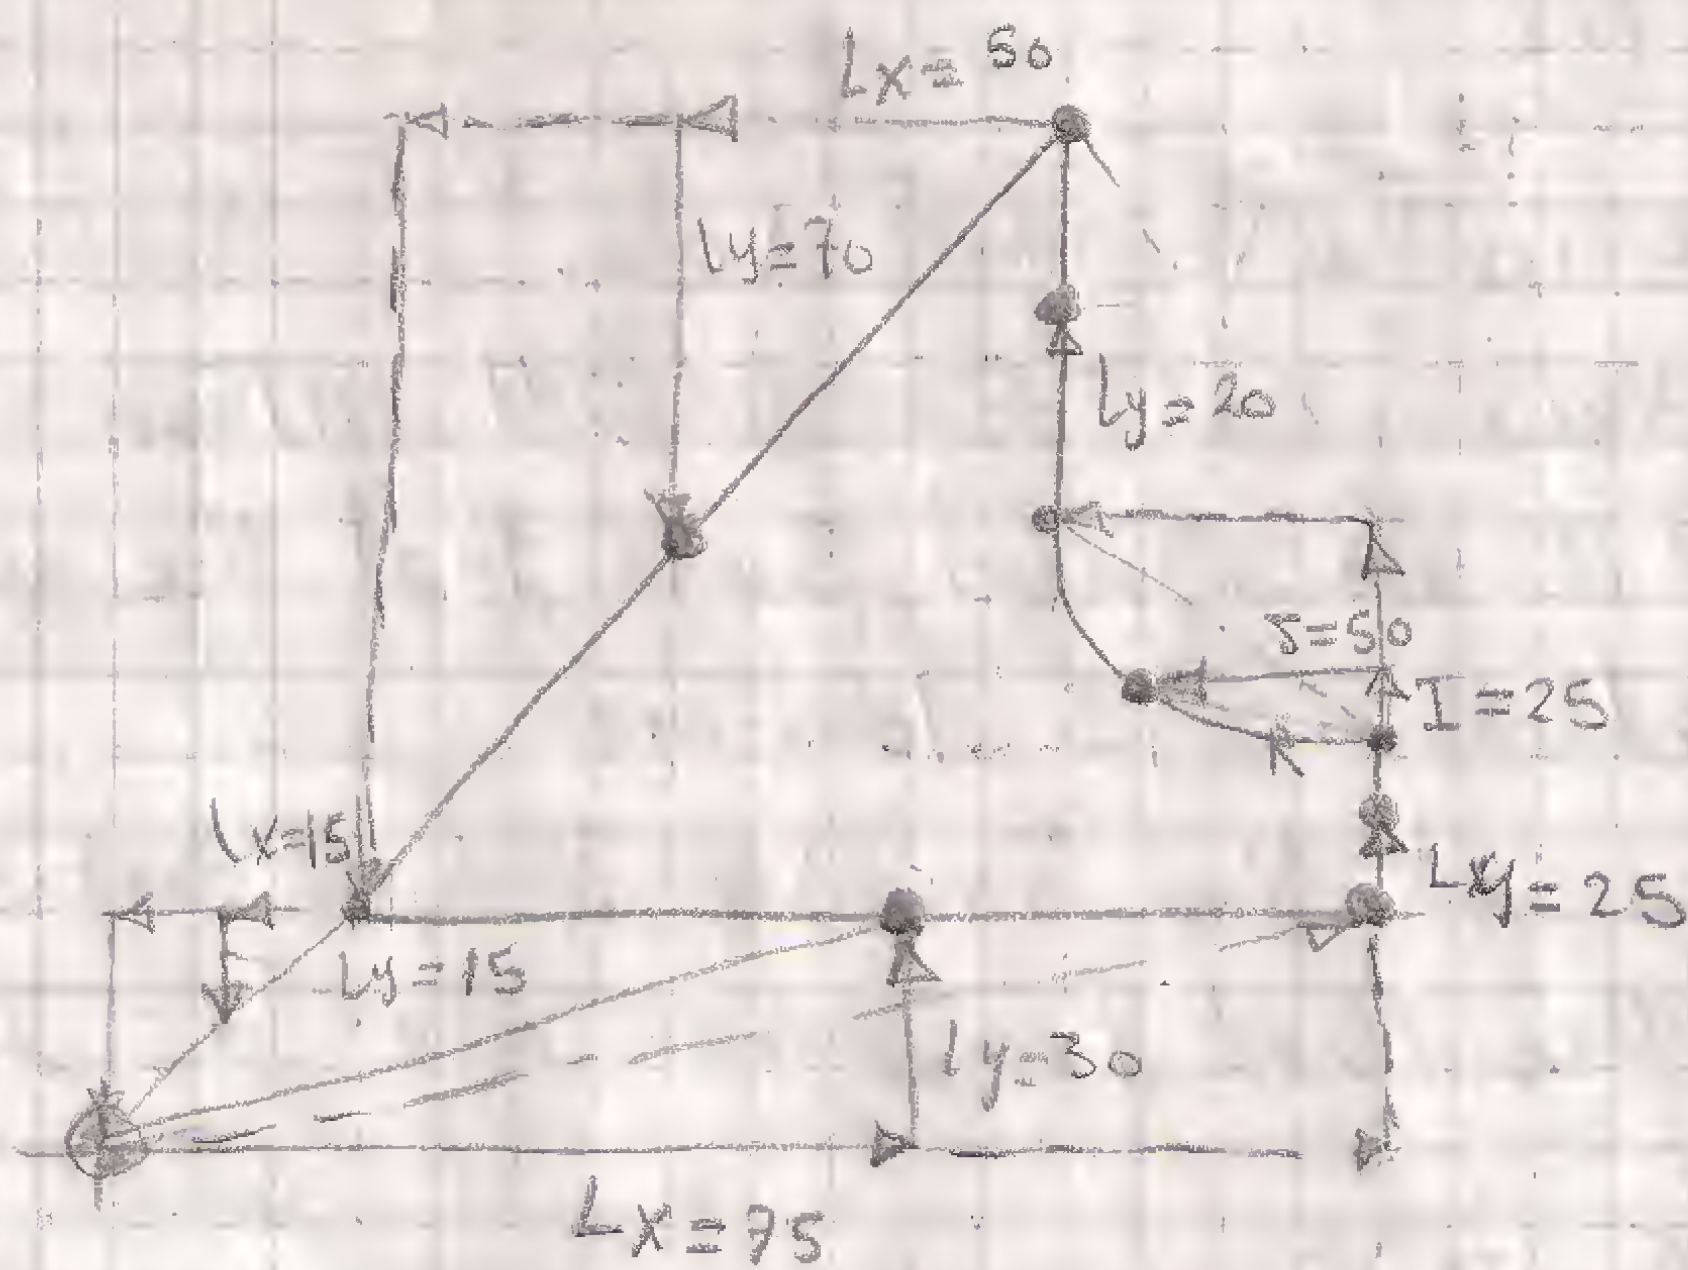 Lx = 50
ly = 70
ly = 20
I = 25
Lx = 15
Lxy = 25
ly = 15
ly = 30
Lx = 75